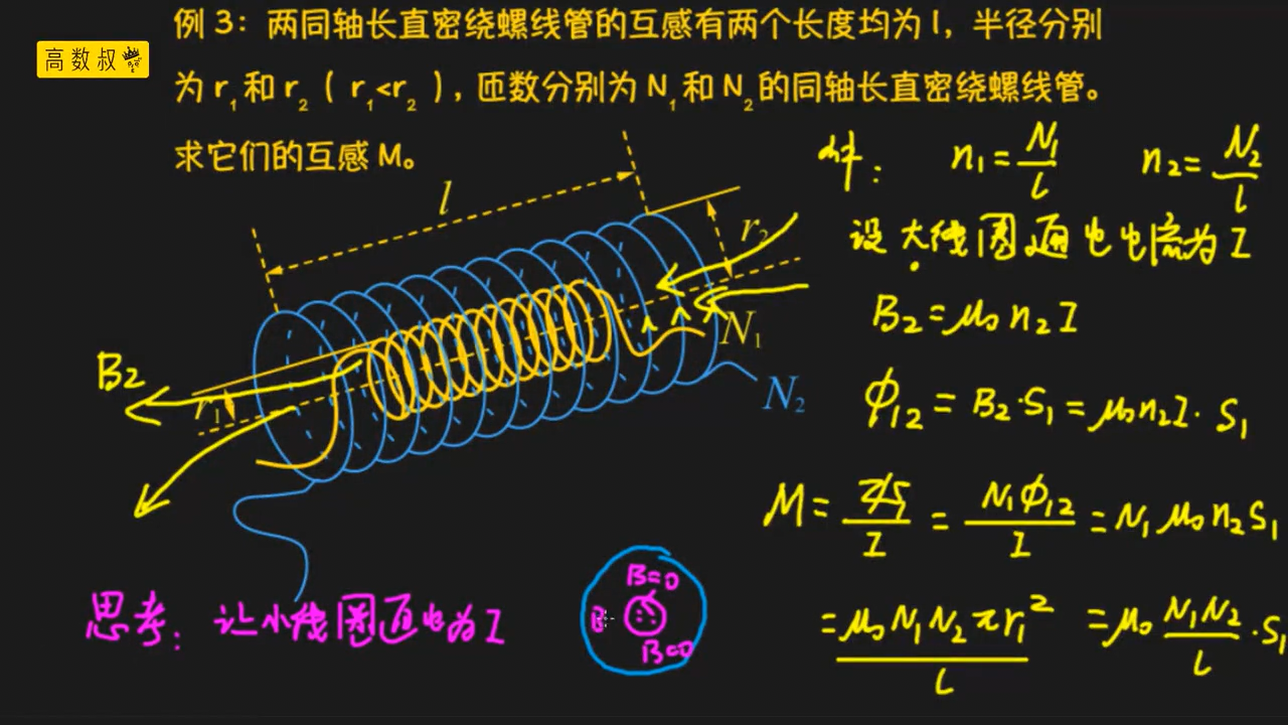 高数叔
例 3：两同轴长直密绕螺线管的互感有两个长度均为 l，半径分别
为 r₁ 和 r₂（ r₁<r₂ ），匝数分别为 N₁ 和 N₂ 的同轴长直密绕螺线管。
求它们的互感 M。
l
r₂
N₁
N₂
B₂
r₁
解： n₁ = N₁/l n₂ = N₂/l
设大线圈通电电流为 I
B₂ = μ₀ n₂ I
Φ₁₂ = B₂·S₁ = μ₀n₂I·S₁
M = Ψ/I = N₁Φ₁₂/I = N₁μ₀n₂S₁
= μ₀N₁N₂πr₁²/l = μ₀ N₁N₂/l ·S₁
思考：让小线圈通电为 I
B=0
B
B=0